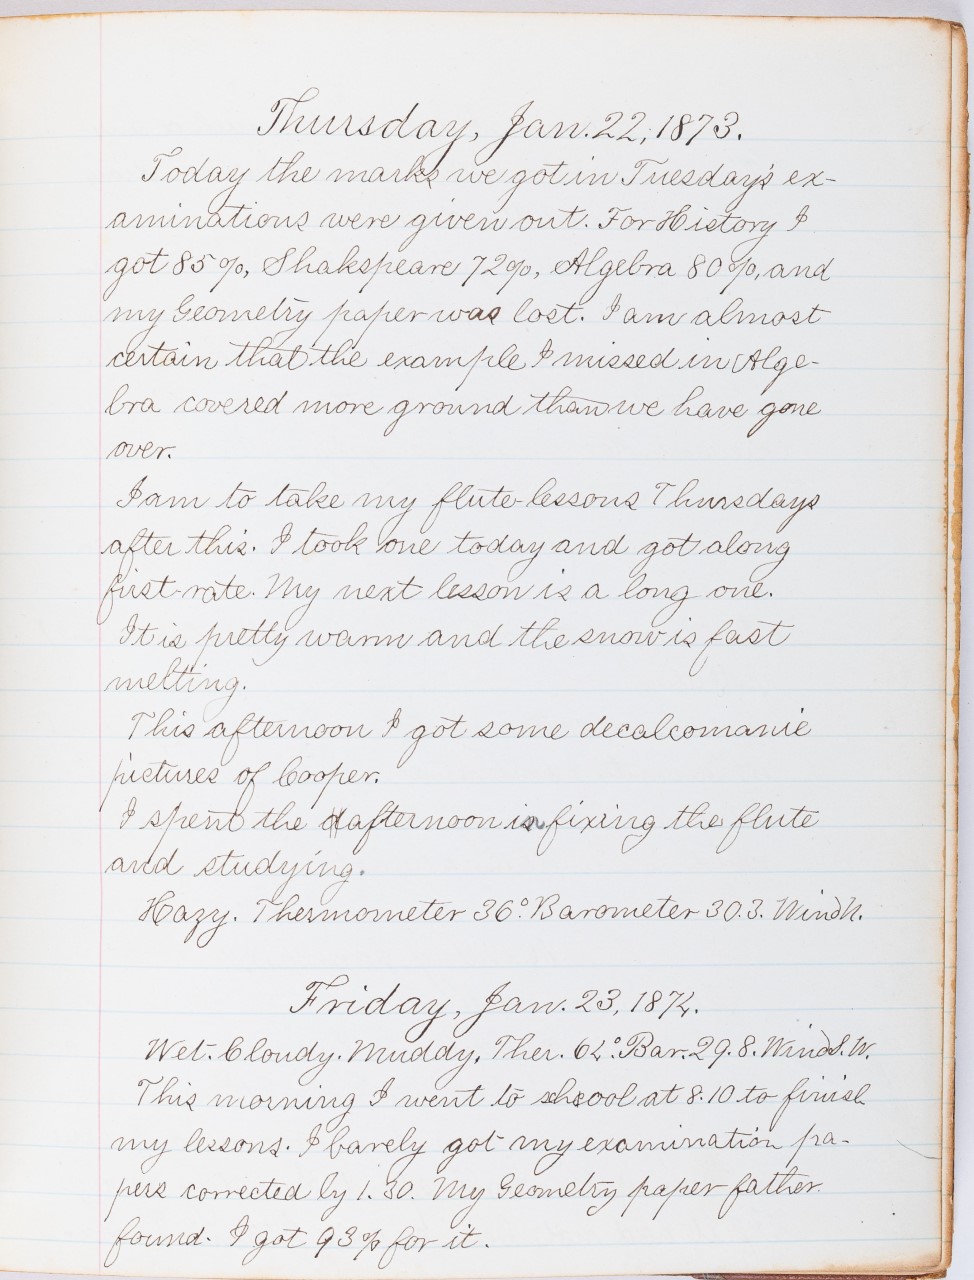 Thursday, Jan. 22, 1873.
Today the marks we got in Tuesday's ex-
aminations were given out. For History I
got 85%, Shakspeare 72%, Algebra 80%, and
my Geometry paper was lost. I am almost
certain that the example I missed in Alge-
bra covered more ground than we have gone
over.
I am to take my flute-lessons Thursdays
after this. I took one today and got along
first-rate. My next lesson is a long one.
It is pretty warm and the snow is fast
melting.
This afternoon I got some decalcomanie
pictures of Cooper.
I spent the afternoon in fixing the flute
and studying.
Hazy. Thermometer 36° Barometer 30.3. Wind N.
Friday, Jan. 23, 1874.
Wet. Cloudy. Muddy. Ther. 62° Bar. 29.8. Wind S.W.
This morning I went to school at 8.10 to finish
my lessons. I barely got my examination pa-
pers corrected by 1.30. My Geometry paper father
found. I got 93% for it.